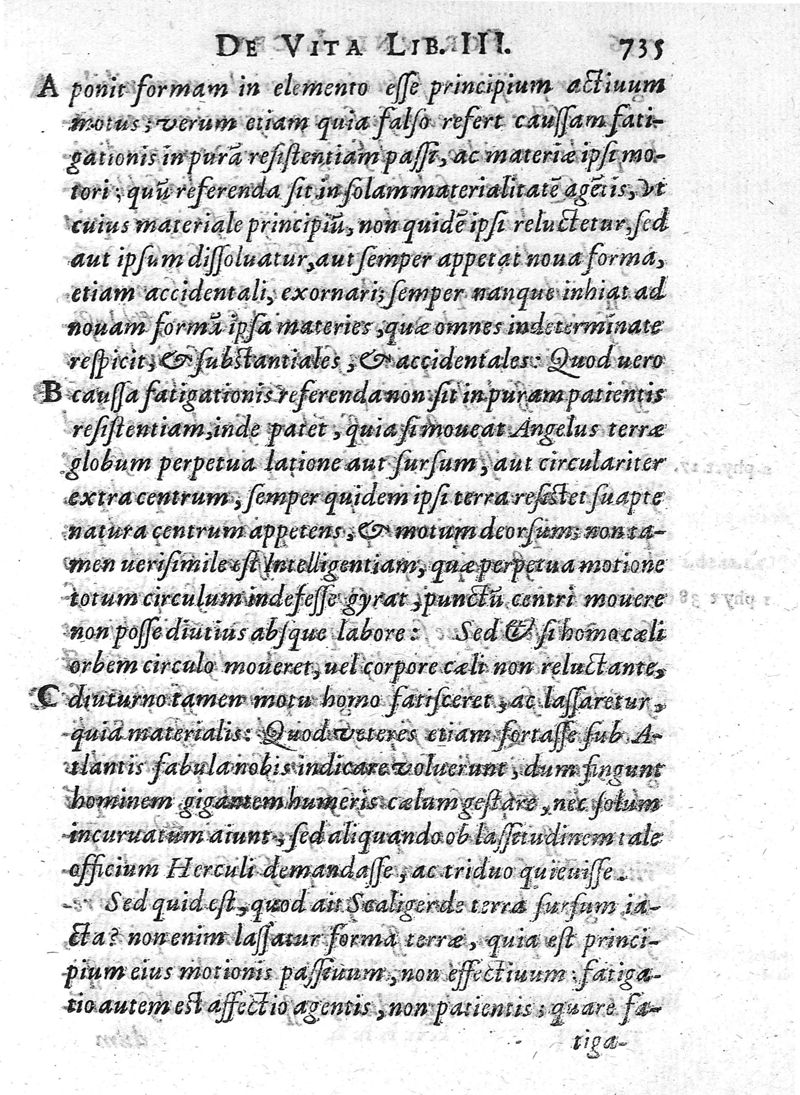 DE VITA LIB. III. 735
A ponit formam in elemento eſſe principium actiuum
motus; verum etiam quia falſo refert cauſſam fati-
gationis in purā reſiſtentiam paſſi, ac materiæ ipſi mo-
tori; quū referenda ſit in ſolam materialitatē agētis, vt
cuius materiale principiū, non quidē ipſi reluctetur, ſed
aut ipſum diſſoluatur, aut ſemper appetat noua forma,
etiam accidentali, exornari; ſemper nanque inhiat ad
nouam formā ipſa materies, quæ omnes indeterminate
reſpicit, & ſubſtantiales, & accidentales: Quod uero
B cauſſa fatigationis referenda non ſit in puram patientis
reſiſtentiam, inde patet, quia ſi moueat Angelus terræ
globum perpetua latione aut ſurſum, aut circulariter
extra centrum, ſemper quidem ipſi terra reſiſtet ſuapte
natura centrum appetens, & motum deorſum; non ta-
men ueriſimile eſt Intelligentiam, quæ perpetua motione
totum circulum indefeſſe gyrat, punctū centri mouere
non poſſe diutius abſque labore: Sed & ſi homo cæli
orbem circulo moueret, uel corpore cæli non reluctante,
C diuturno tamen motu homo fatiſceret, ac laſſaretur,
quia materialis: Quod veteres etiam fortaſſe ſub A-
tlantis fabula nobis indicare voluerunt, dum fingunt
hominem gigantem humeris cælum geſtare, nec ſolum
incuruatum aiunt, ſed aliquando ob laſſitudinem tale
officium Herculi demandaſſe, ac triduo quieuiſſe.
Sed quid eſt, quod ait Scaliger de terra ſurſum ia-
cta? non enim laſſatur forma terræ, quia eſt princi-
pium eius motionis paſſiuum, non effectiuum; fatiga-
tio autem est affectio agentis, non patientis; quare fa-
tiga-